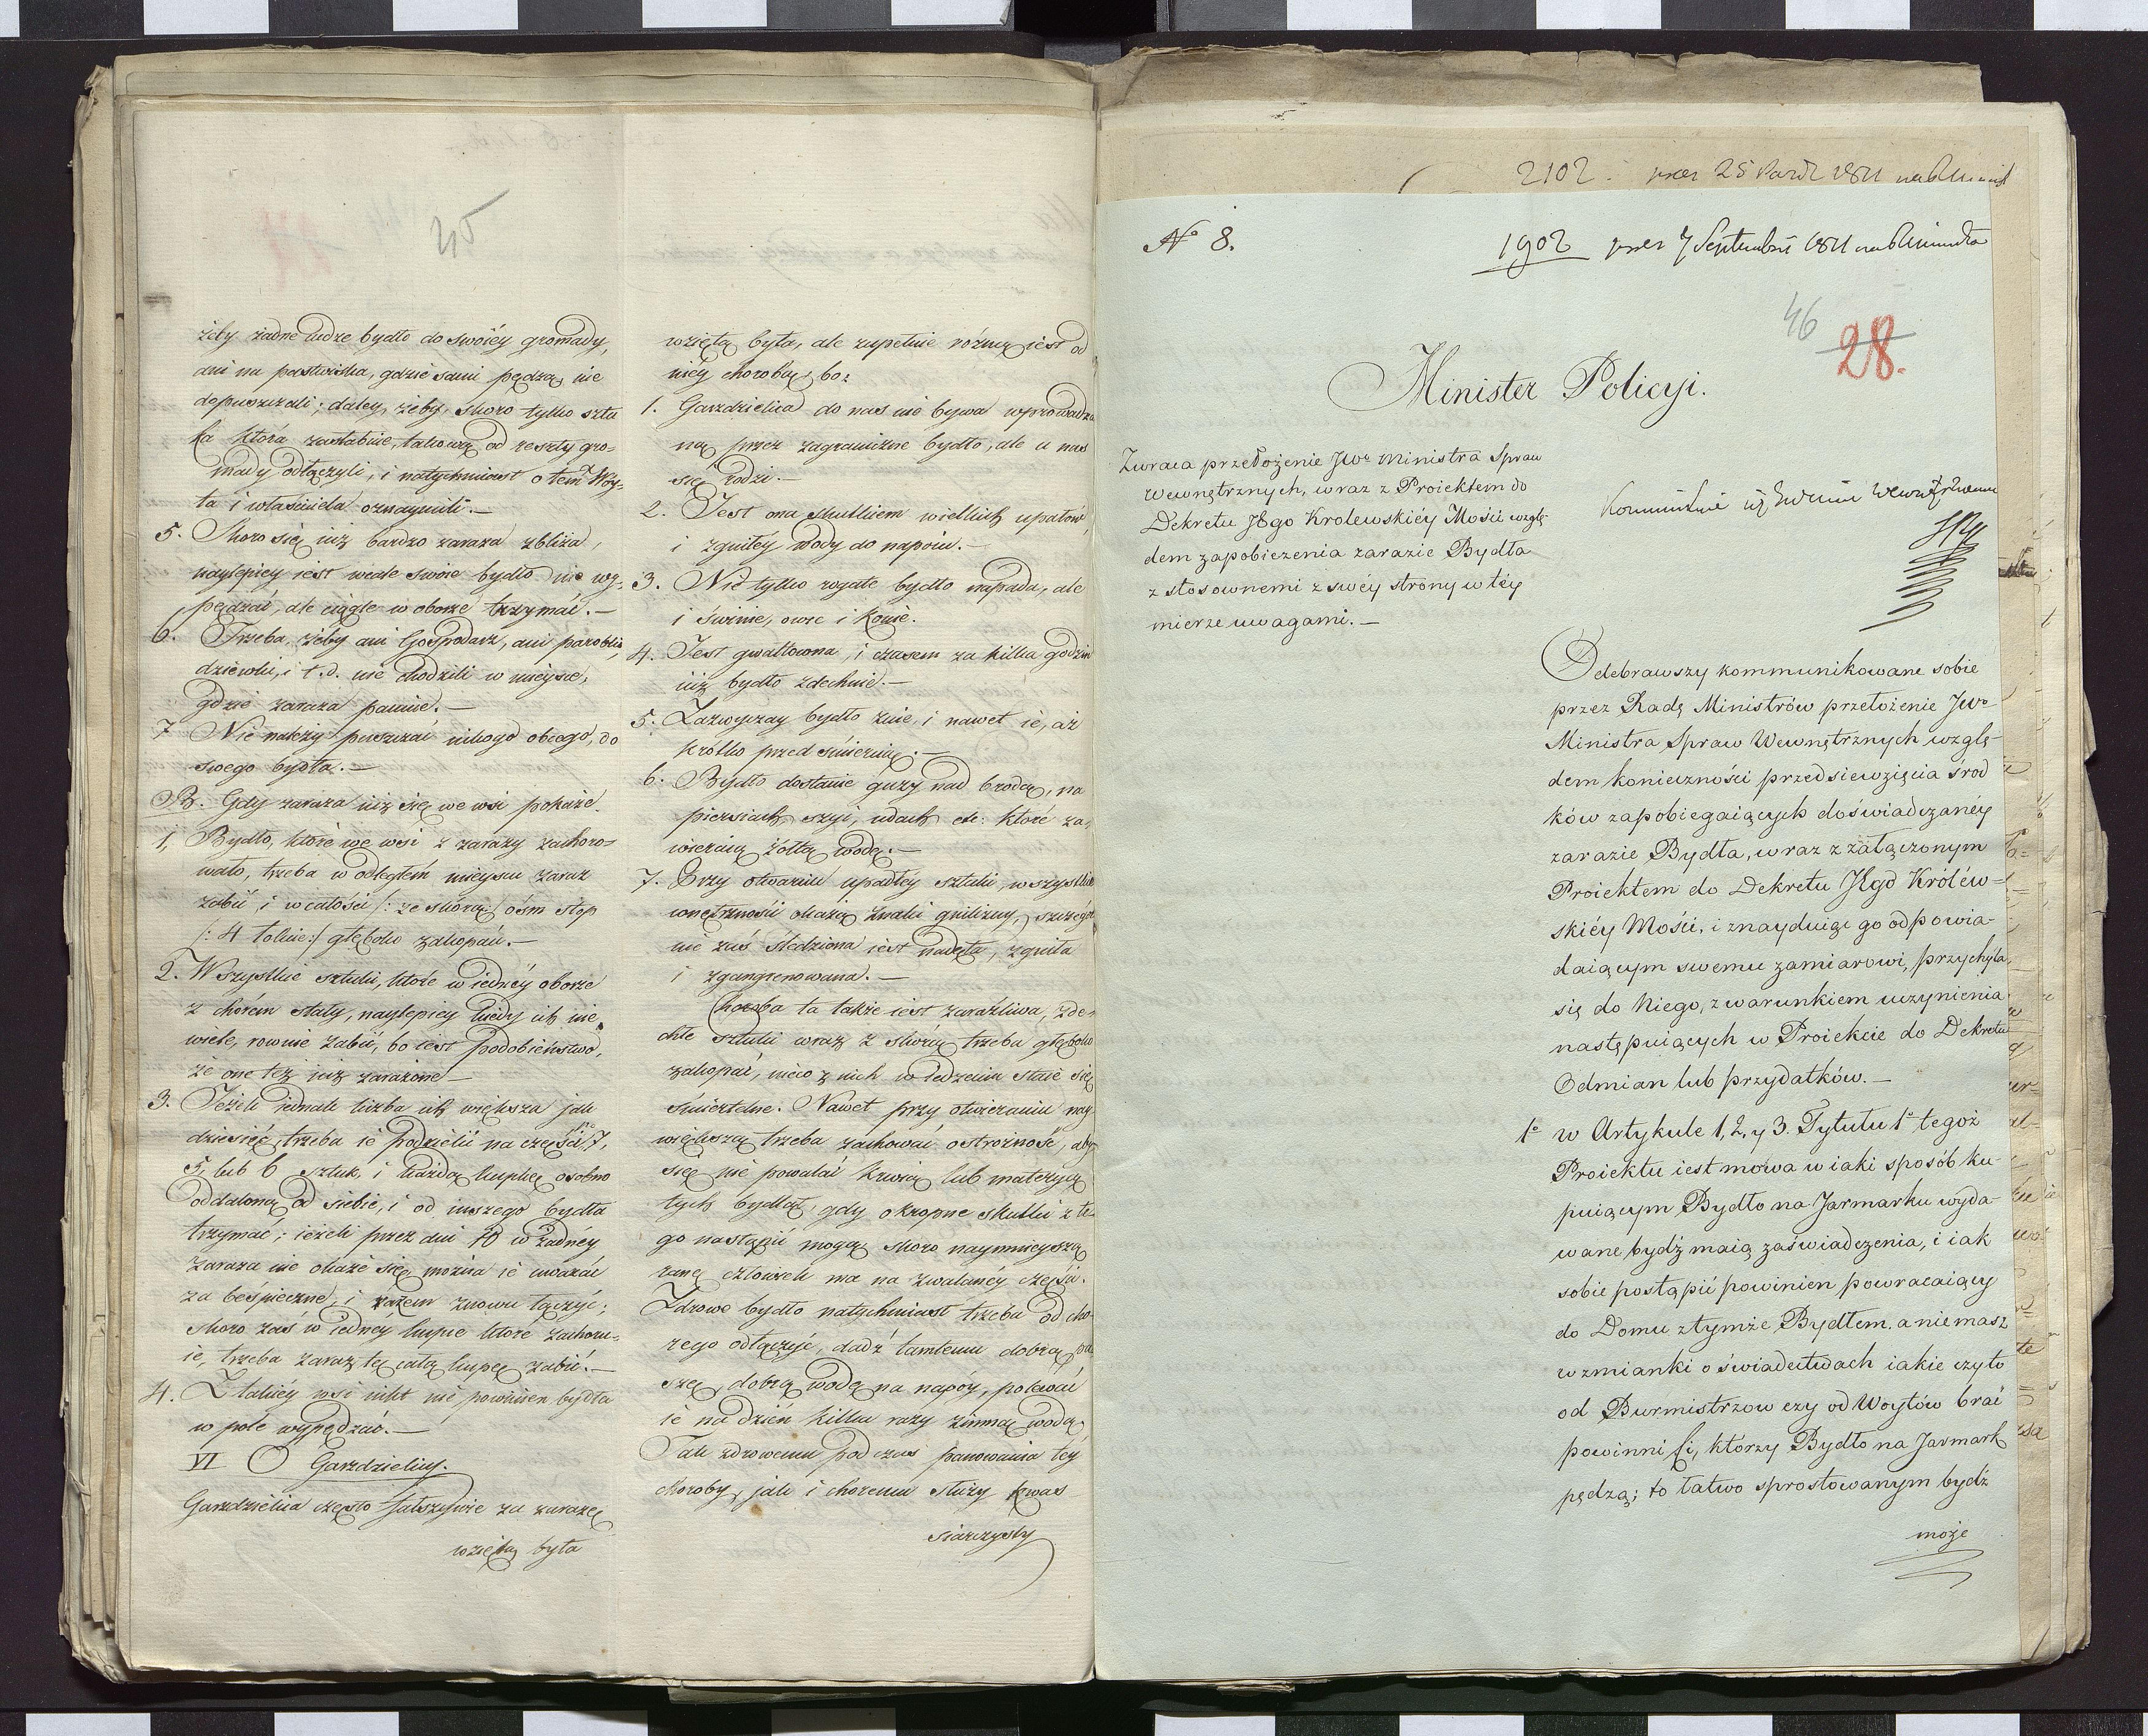 45
żeby żadne cudze bydło do swoiéy gromady,
ani na pastwiska, gdzie sami pędzą, nie
dopuszczali; daley, żeby, skoro tylko sztu
ka która zasłabnie, takową od reszty gro-
mady odłączyli, i natychmiast o tem Wóy-
ta i właściciela oznaymili.—
5. Skoro się iuż bardzo zaraza zbliża,
naylepiey iest wcale swoie bydło nie wy-
pędzać, ale ciągle w oborze trzymać.—
6. Trzeba, żeby ani Gospodarz, ani parobki,
dziewki, i t.d. nie chodzili w mieysce,
gdzie zaraza panuie.—
7 Nie należy puszczać nikogo obcego, do
swego bydła.—
B. Gdy zaraza iuż się we wsi pokaże.
1, Bydło, które we wsi z zarazy zachoro-
wało, trzeba w odległém mieyscu zaraz
zabić, i w całości /: ze skórą:/ ośm stóp
/: 4 łokcie:/ głęboko zakopać.—
2. Wszystkie sztuki, które w iednéy oborze
z chorém stały, naylepiey kiedy ich nie
wiele, rownie zabić, bo iest podobieństwo,
że one też iuż zarażone—
3. Jeżeli iednak liczba ich większa jak
dziesięć, trzeba ie podzielić na części 7,
5, lub 6 sztuk, i każdą kupkę osobno
oddaloną od siebie, i od inszego bydła
trzymać; ieżeli przez dni 10 w żadnéy
zaraza nie okaże się, można ie uważać
za bespieczne, i razem znowu łączyć;
skoro zaś w iedney kupie które zachoru-
ie, trzeba zaraz tę całą kupę zabić.—
4. Z takiéy wsi nikt nie powinien bydła
w pole wypędzać.—
VI O Gardzielicy.
Gardzielica często fałszywie za zarazę
wziętą była
wziętą była, ale zupełnie różną iest od
niey chorobą; bo:
1. Gardzielica do nas nie bywa wprowadzo
ną przez zagraniczne bydło, ale u nas
się rodzi.—
2. Jest ona skutkiem wielkich upałów,
i zgniłey wody do napoiu.—
3. Nie tylko rogate bydło napada, ale
i świnie, owce i konie.
4. Jest gwałtowna, i czasem za kilka godzin
iuż bydło zdechnie.—
5. Zazwyczay bydło żuie, i nawet ie, aż
krótko przed śmiercią.—
6. Bydło dostanie guzy nad brodą, na
piersiach, szyi, udach etc: które za-
wieraią żółtą wodę.—
7. Przy otwarciu upadłéy sztuki, wszystkie
wnętrzności okażą znaki gnilizny, szczegól
nie zaś śledziona iest nadęta, zgniła
i zgangrenowana.—
Choroba ta także iest zaraźliwa, zde-
chłe sztuki wraz z skórą trzeba głęboko
zakopać, nieco z nich w iedzeniu staie się
śmiertelne. Nawet przy otwieraniu nay-
większą trzeba zachować ostrożność, aby
się nie powalać krwią lub materyą
tych bydląt, gdy okropne skutki z te-
go nastąpić mogą, skoro naymnieyszą
ranę człowiek ma na zwalanéy części.
Zdrowe bydło natychmiast trzeba od cho-
rego odłączyć, dadź tamtemu dobrą pa
szę, dobrą wodę na napóy, polewać
ie na dzień kilka razy zimną wodą.
Tak zdrowemu podczas panowania tey
choroby, jak i choremu służy kwas
siarczysty
2102. 25 Paźdz 1811
No 8.
1902 7 Septembris 1811
46
28.
Minister Policyi.
Zwraca przełożenie JWo Ministra Spraw
Wewnętrznych, wraz z Proiektem do
Dekretu JKgo Krolewskiéy Mości wzglę
dem zapobieżenia zarazie Bydła
z stosownemi z swéy strony w téy
mierze uwagami.—
Odebrawszy kommunikowane sobie
przez Radę Ministrów przełożenie JWo
Ministra Spraw Wewnętrznych wzglę-
dem konieczności przedsiewzięcia środ
ków zapobiegaiących doświadczanéy
zarazie Bydła, wraz z załączonym
Proiektem do Dekretu JKgo Królew=
skiéy Mości, i znayduiąc go odpowia-
daiącym swemu zamiarowi, przychyla
się do Niego, z warunkiem uczynienia
następuiących w Proiekcie do Dekretu
Odmian lub przydatków.—
1o w Artykule 1, 2, y 3. Tytułu 1o tegoż
Proiektu iest mowa w iaki sposób ku-
puiącym Bydło na Jarmarku wyda-
wane bydź maią zaświadczenia, i iak
sobie postąpić powinien powracaiący
do Domu z tymże Bydłem, a nie masz
wzmianki o świadectwach iakie czyto
od Burmistrzow czy od Woytów brać
powinni Ci, ktorzy Bydło na Jarmark
pędzą; to łatwo sprostowanym bydź
może